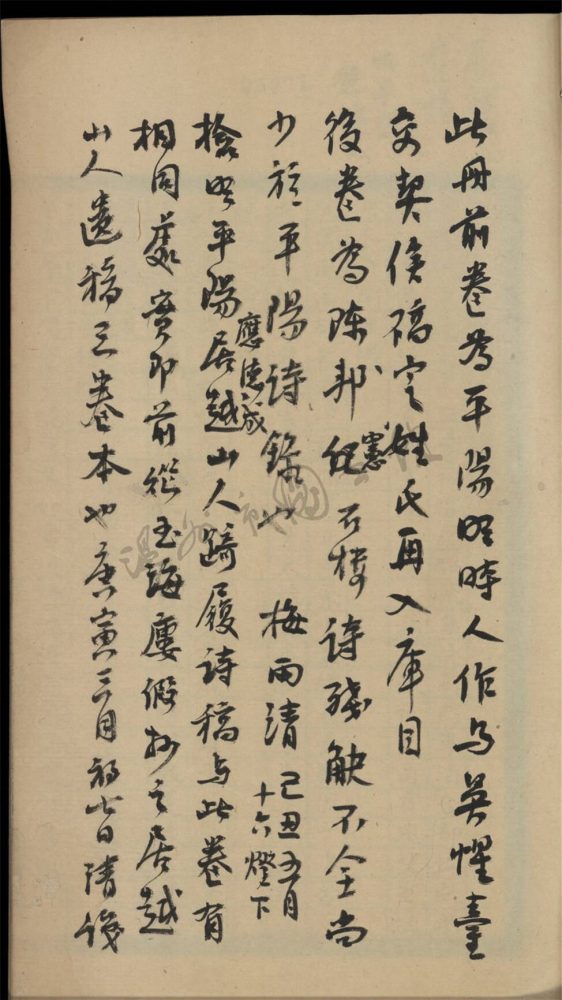 此册前卷為平陽明時人作与吳懼臺
交契俟碻定姓氏再入庫目
後卷為陳邦紀憲石樓诗殘觖不全尚
少於平陽诗錄也 梅雨清己丑五月十六燈下
捡明平陽居越應德成山人蹄履诗稿与此卷有
相同處實即前從玉海廔假抄之居越
山人遗稿三卷本也庚寅三月初七日清後